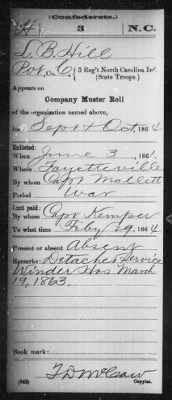 (Confederate.)
H 3 N.C.
L. B. Hill
Pvt, Co. C, 3 Reg't North Carolina Inf.
(State Troops.)
Appears on
Company Muster Roll
of the organization named above,
for Sept & Oct, 1864.
Enlisted:
When June 3, 186
Where Fayetteville
By whom Capt Mallett
Period War
Last paid:
By whom Capt Kemper
To what time Feby 29, 1864
Present or absent Absent
Remarks: Detached Service
Winder Hos March
19, 1863.
Book mark:
T D McCaw
(642) Copyist.